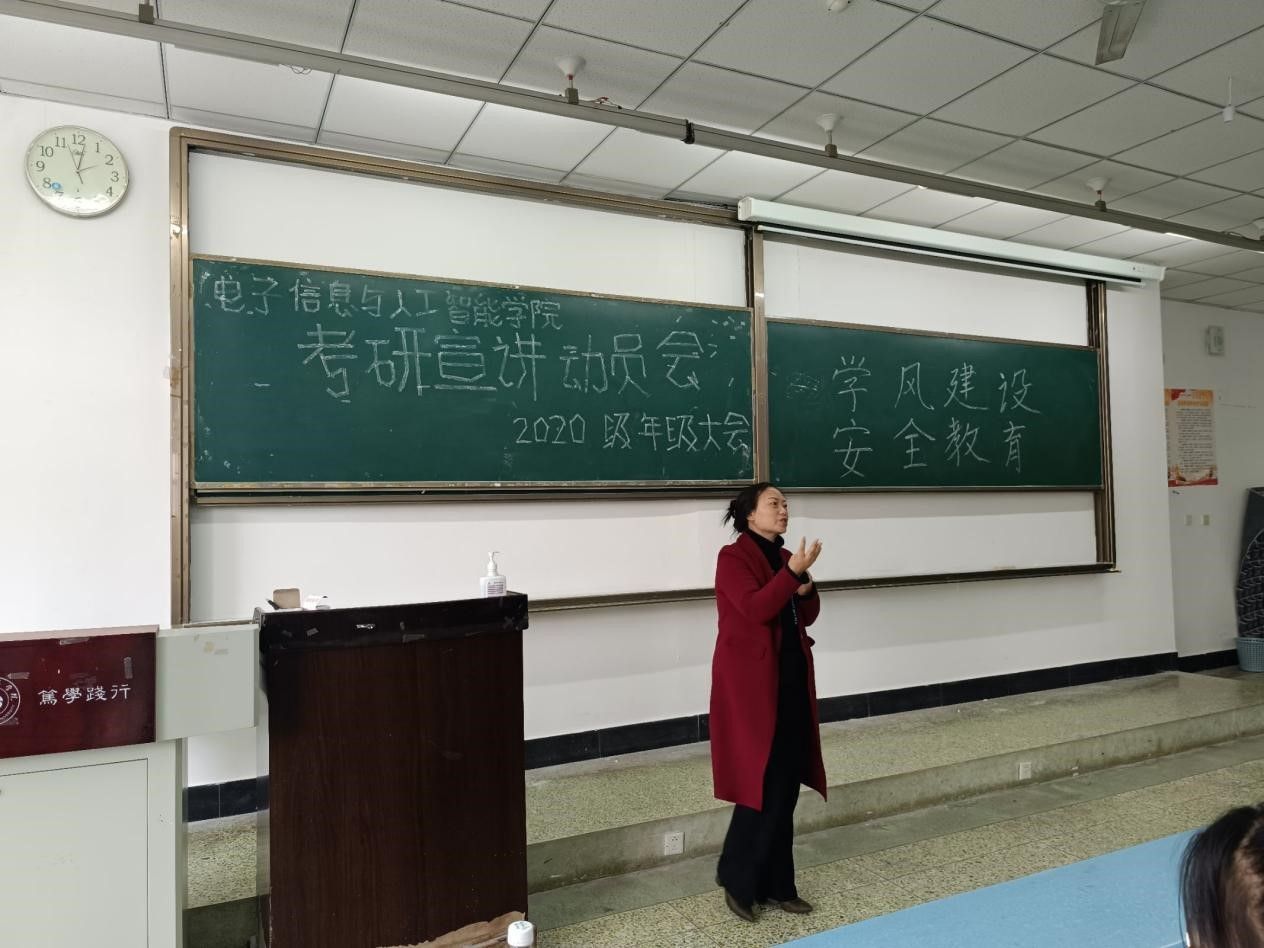 电子信息与人工智能学院
考研宣讲动员会
2020级年级大会
学风建设
安全教育
篤學践行
12
1
2
3
4
7
8
9
10
11